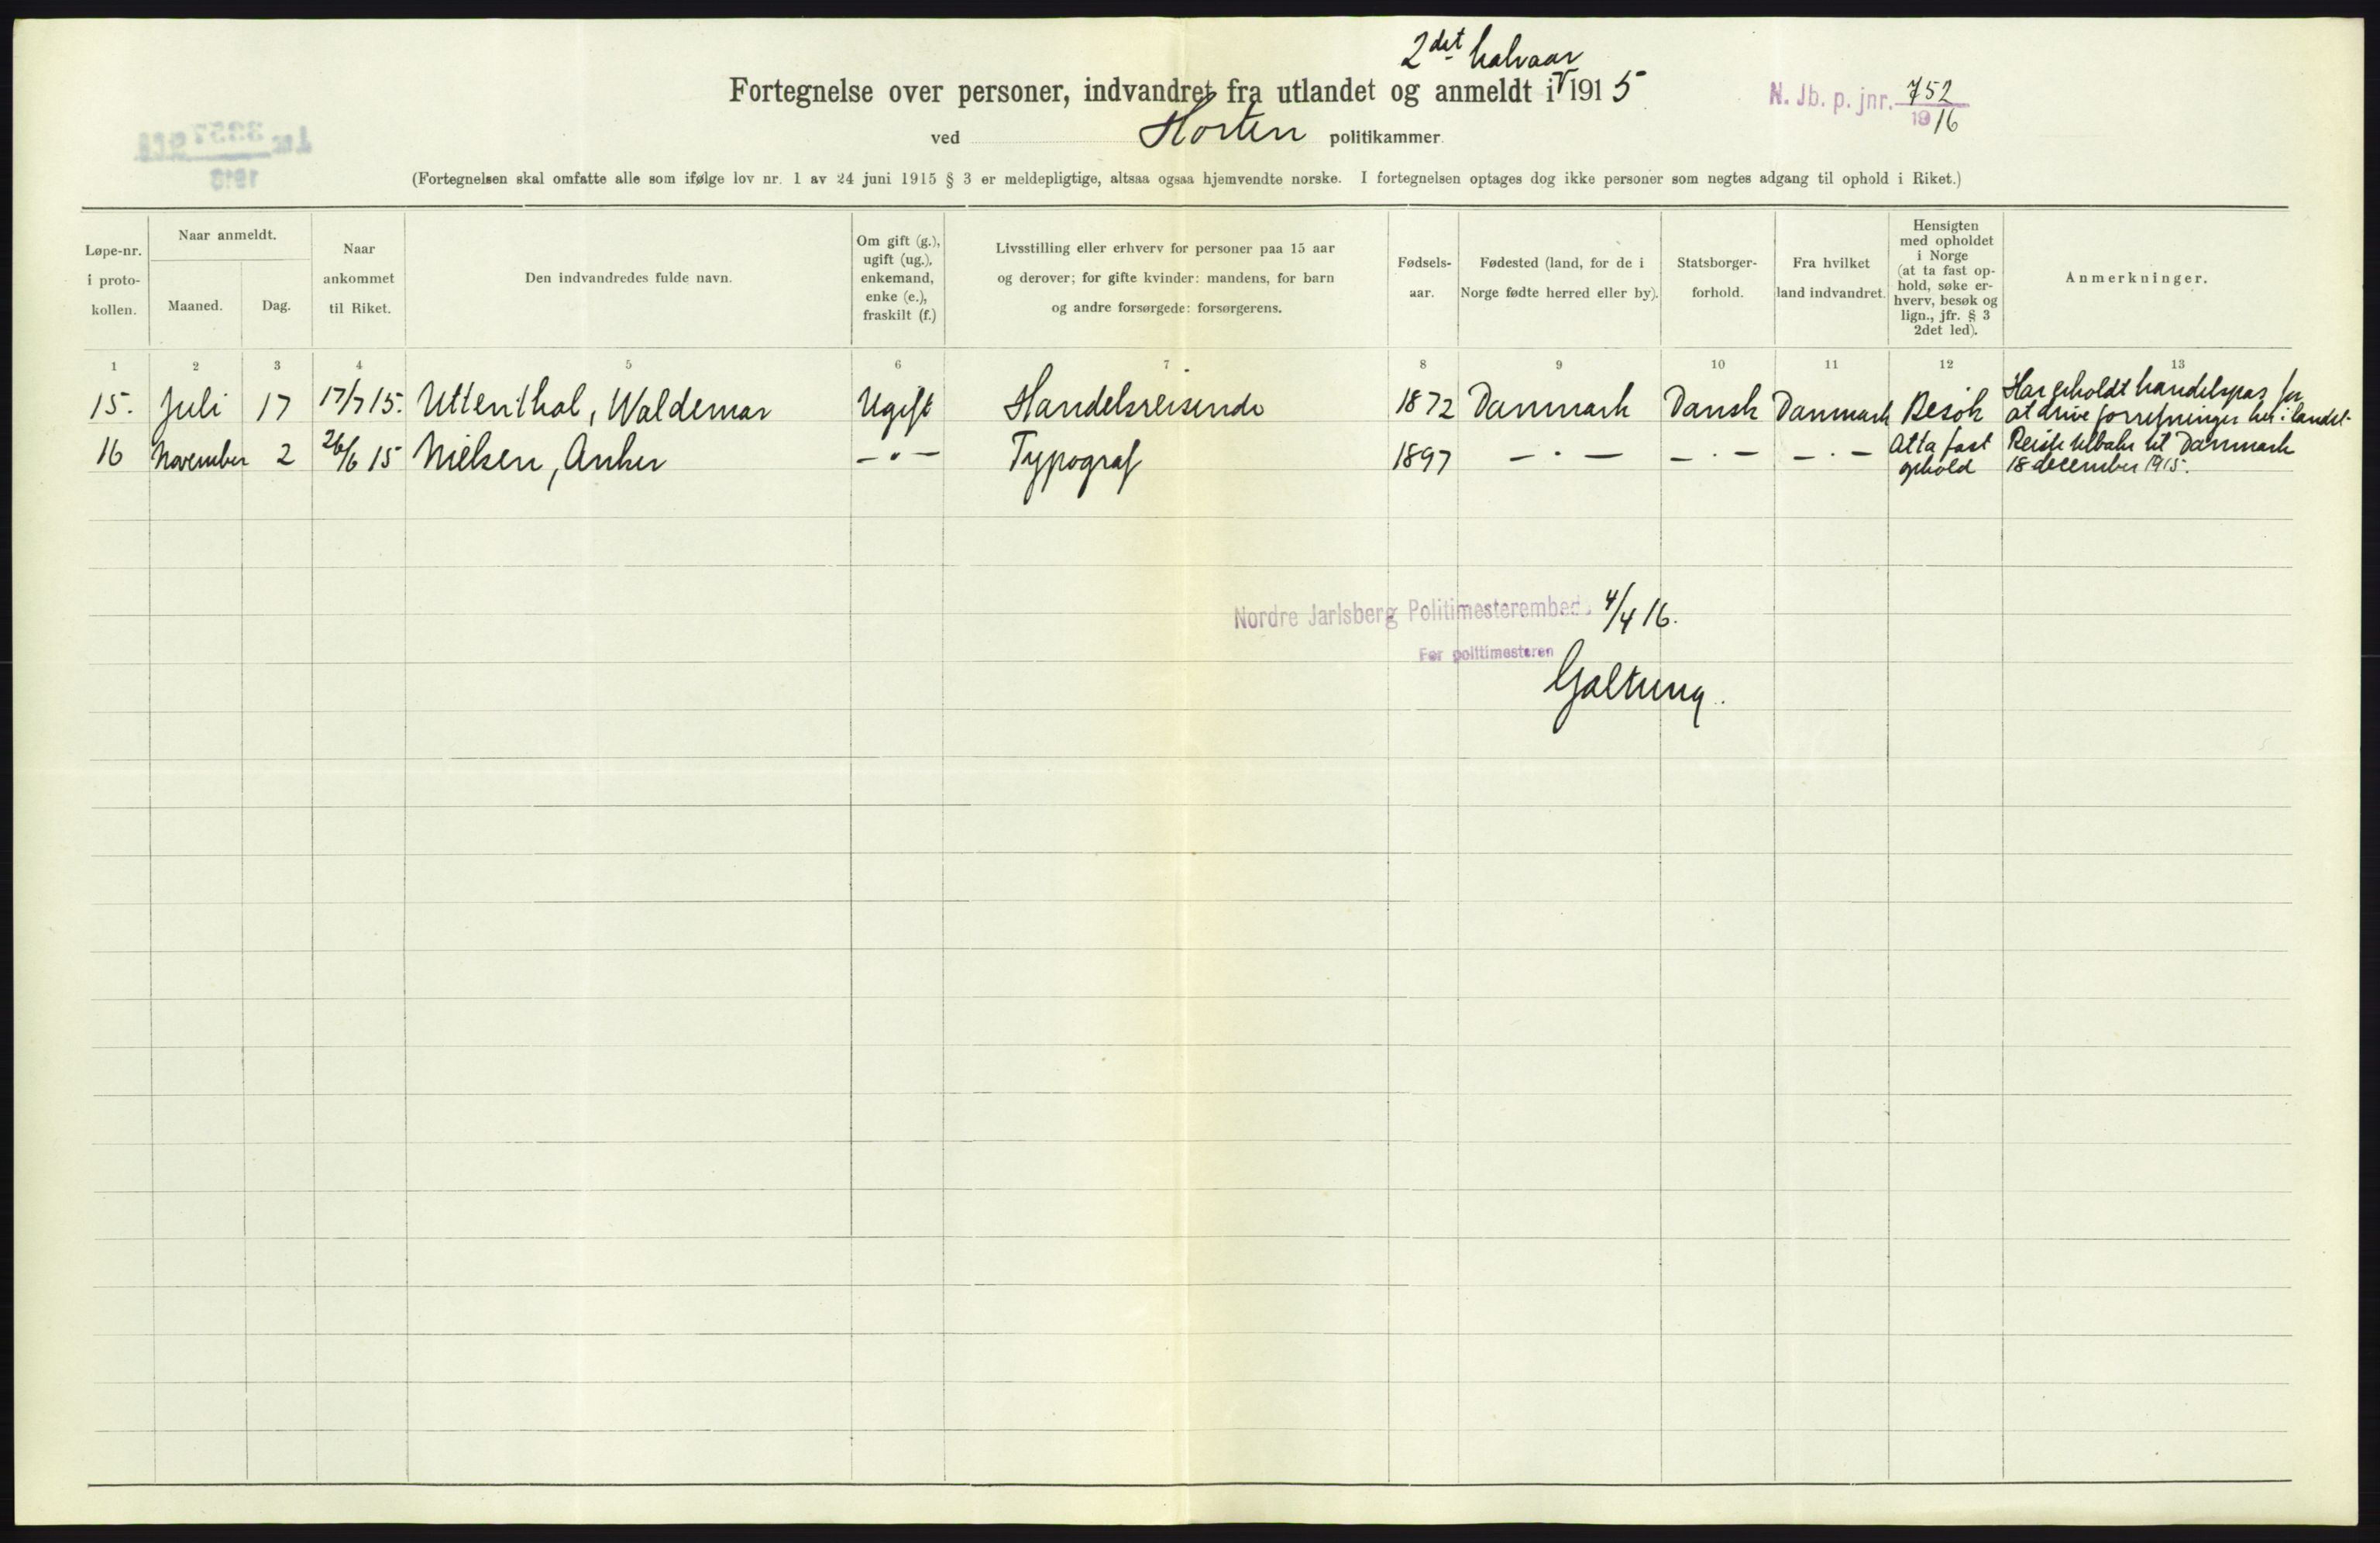 2det halvaar
Fortegnelse over personer, indvandret fra utlandet og anmeldt i 1915
N. Jb. p. jnr. 752
1916
ved Horten politikammer.
(Fortegnelsen skal omfatte alle som ifølge lov nr. 1 av 24 juni 1915 § 3 er meldepligtige, altsaa ogsaa hjemvendte norske. I fortegnelsen optages dog ikke personer som negtes adgang til ophold i Riket.)
Løpe-nr.
i proto-
kollen.
Naar anmeldt.
Maaned.
Dag.
Naar
ankommet
til Riket.
Den indvandredes fulde navn.
Om gift (g.),
ugift (ug.),
enkemand,
enke (e.),
fraskilt (f.)
Livsstilling eller erhverv for personer paa 15 aar
og derover; for gifte kvinder: mandens, for barn
og andre forsørgede: forsørgerens.
Fødsels-
aar.
Fødested (land, for de i
Norge fødte herred eller by).
Statsborger-
forhold.
Fra hvilket
land indvandret.
Hensigten
med opholdet
i Norge
(at ta fast op-
hold, søke er-
hverv, besøk og
lign., jfr. § 3
2det led).
Anmerkninger.
1 2 3 4 5 6 7 8 9 10 11 12 13
15. Juli 17 17/7 15. Uttenthal, Waldemar Ugift Handelsreisende 1872 Danmark Dansk Danmark Besøk Har erholdt handelspas for
at drive forretninger her i landet.
16 November 2 26/6 15 Nielsen, Anker — · — Typograf 1897 — · — — · — — · — At ta fast
ophold
Reiste tilbake til Danmark
18 december 1915.
Nordre Jarlsberg Politimesterembede 4/4 16.
For politimesteren
Galtung.